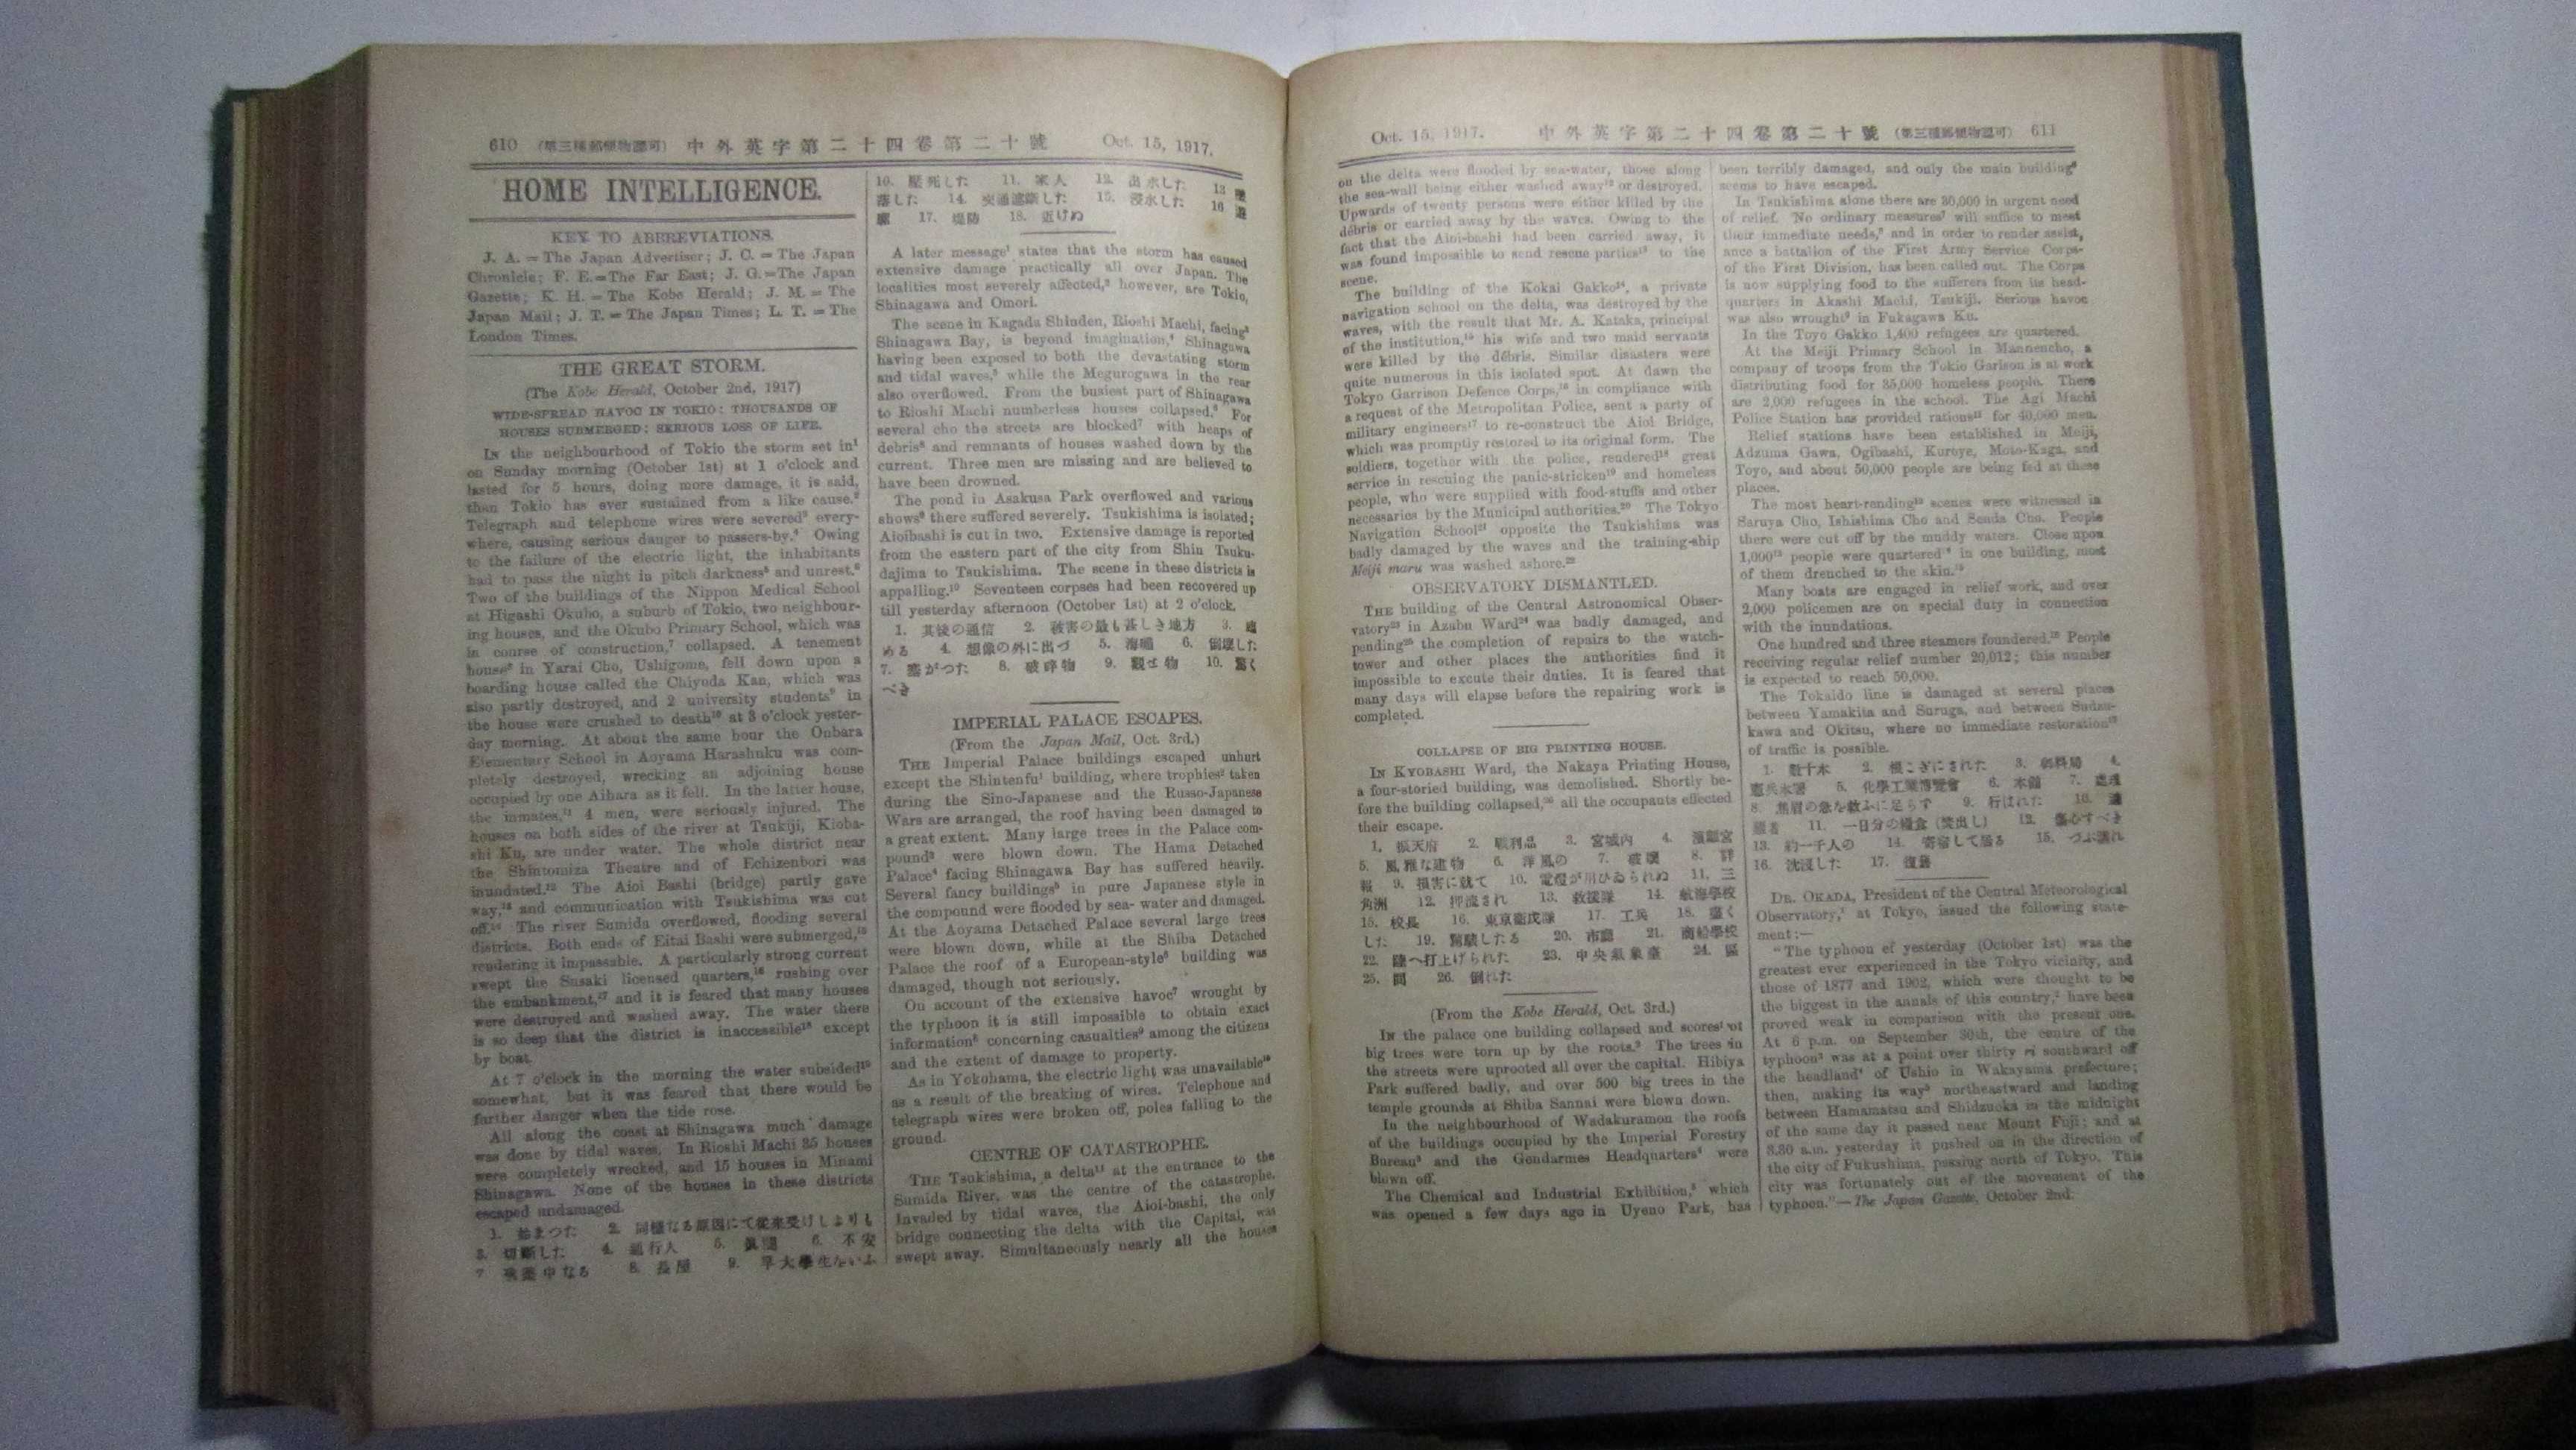 610 (第三種郵便物認可) 中外英字第二十四卷第二十號 Oct. 15, 1917.
HOME INTELLIGENCE.
KEY TO ABBREVIATIONS.
J. A. = The Japan Advertiser; J. C. = The Japan
Chronicle; F. E. = The Far East; J. G. = The Japan
Gazette; K. H. = The Kobe Herald; J. M. = The
Japan Mail; J. T. = The Japan Times; L. T. = The
London Times.
THE GREAT STORM.
(The Kobe Herald, October 2nd, 1917)
WIDE-SPREAD HAVOC IN TOKIO: THOUSANDS OF
HOUSES SUBMERGED: SERIOUS LOSS OF LIFE.
IN the neighbourhood of Tokio the storm set in¹
on Sunday morning (October 1st) at 1 o'clock and
lasted for 5 hours, doing more damage, it is said,
than Tokio has ever sustained from a like cause.²
Telegraph and telephone wires were severed³ every-
where, causing serious danger to passers-by.⁴ Owing
to the failure of the electric light, the inhabitants
had to pass the night in pitch darkness⁵ and unrest.⁶
Two of the buildings of the Nippon Medical School
at Higashi Okubo, a suburb of Tokio, two neighbour-
ing houses, and the Okubo Primary School, which was
in course of construction,⁷ collapsed. A tenement
house⁸ in Yarai Cho, Ushigome, fell down upon a
boarding house called the Chiyoda Kan, which was
also partly destroyed, and 2 university students⁹ in
the house were crushed to death¹⁰ at 3 o'clock yester-
day morning. At about the same hour the Onbara
Elementary School in Aoyama Harashuku was com-
pletely destroyed, wrecking an adjoining house
occupied by one Aihara as it fell. In the latter house,
the inmates,¹¹ 4 men, were seriously injured. The
houses on both sides of the river at Tsukiji, Kioba-
shi Ku, are under water. The whole district near
the Shintomiza Theatre and of Echizenbori was
inundated.¹² The Aioi Bashi (bridge) partly gave
way,¹³ and communication with Tsukishima was cut
off.¹⁴ The river Sumida overflowed, flooding several
districts. Both ends of Eitai Bashi were submerged,¹⁵
rendering it impassable. A particularly strong current
swept the Susaki licensed quarters,¹⁶ rushing over
the embankment,¹⁷ and it is feared that many houses
were destroyed and washed away. The water there
is so deep that the district is inaccessible¹⁸ except
by boat.
At 7 o'clock in the morning the water subsided¹⁹
somewhat, but it was feared that there would be
further danger when the tide rose.
All along the coast at Shinagawa much damage
was done by tidal waves. In Rioshi Machi 35 houses
were completely wrecked, and 15 houses in Minami
Shinagawa. None of the houses in these districts
escaped undamaged.
1. 始まつた 2. 同樣なる原因にて從來受けしよりも
3. 切斷した 4. 通行人 5. 眞闇 6. 不安
7. 建築中なる 8. 長屋 9. 早大學生をいふ
10. 壓死した 11. 家人 12. 出水した 13 墜
落した 14. 交通遮斷した 15. 浸水した 16 遊
廓 17. 堤防 18. 近けぬ
A later message¹ states that the storm has caused
extensive damage practically all over Japan. The
localities most severely affected,² however, are Tokio,
Shinagawa and Omori.
The scene in Kagada Shinden, Rioshi Machi, facing³
Shinagawa Bay, is beyond imagination,⁴ Shinagawa
having been exposed to both the devastating storm
and tidal waves,⁵ while the Megurogawa in the rear
also overflowed. From the busiest part of Shinagawa
to Rioshi Machi numberless houses collapsed.⁶ For
several cho the streets are blocked⁷ with heaps of
debris⁸ and remnants of houses washed down by the
current. Three men are missing and are believed to
have been drowned.
The pond in Asakusa Park overflowed and various
shows⁹ there suffered severely. Tsukishima is isolated;
Aioibashi is cut in two. Extensive damage is reported
from the eastern part of the city from Shin Tsuku-
dajima to Tsukishima. The scene in these districts is
appalling.¹⁰ Seventeen corpses had been recovered up
till yesterday afternoon (October 1st) at 2 o'clock.
1. 其後の通信 2. 被害の最も甚しき地方 3. 面
める 4. 想像の外に出づ 5. 海嘯 6. 倒壞した
7. 塞がつた 8. 破碎物 9. 觀せ物 10. 驚く
べき
IMPERIAL PALACE ESCAPES.
(From the Japan Mail, Oct. 3rd.)
THE Imperial Palace buildings escaped unhurt
except the Shintenfu¹ building, where trophies² taken
during the Sino-Japanese and the Russo-Japanese
Wars are arranged, the roof having been damaged to
a great extent. Many large trees in the Palace com-
pound³ were blown down. The Hama Detached
Palace⁴ facing Shinagawa Bay has suffered heavily.
Several fancy buildings⁵ in pure Japanese style in
the compound were flooded by sea-water and damaged.
At the Aoyama Detached Palace several large trees
were blown down, while at the Shiba Detached
Palace the roof of a European-style⁶ building was
damaged, though not seriously.
On account of the extensive havoc⁷ wrought by
the typhoon it is still impossible to obtain exact
information⁸ concerning casualties⁹ among the citizens
and the extent of damage to property.
As in Yokohama, the electric light was unavailable¹⁰
as a result of the breaking of wires. Telephone and
telegraph wires were broken off, poles falling to the
ground.
CENTRE OF CATASTROPHE.
THE Tsukishima, a delta¹¹ at the entrance to the
Sumida River, was the centre of the catastrophe.
Invaded by tidal waves, the Aioi-bashi, the only
bridge connecting the delta with the Capital, was
swept away. Simultaneously nearly all the houses
Oct. 15, 1917. 中外英字第二十四卷第二十號 (第三種郵便物認可) 611
on the delta were flooded by sea-water, those along
the sea-wall being either washed away¹² or destroyed.
Upwards of twenty persons were either killed by the
débris or carried away by the waves. Owing to the
fact that the Aioi-bashi had been carried away, it
was found impossible to send rescue parties¹³ to the
scene.
The building of the Kokai Gakko¹⁴, a private
navigation school on the delta, was destroyed by the
waves, with the result that Mr. A. Kataka, principal
of the institution,¹⁵ his wife and two maid servants
were killed by the débris. Similar disasters were
quite numerous in this isolated spot. At dawn the
Tokyo Garrison Defence Corps,¹⁶ in compliance with
a request of the Metropolitan Police, sent a party of
military engineers¹⁷ to re-construct the Aioi Bridge,
which was promptly restored to its original form. The
soldiers, together with the police, rendered¹⁸ great
service in rescuing the panic-stricken¹⁹ and homeless
people, who were supplied with food-stuffs and other
necessaries by the Municipal authorities.²⁰ The Tokyo
Navigation School²¹ opposite the Tsukishima was
badly damaged by the waves and the training-ship
Meiji maru was washed ashore.²²
OBSERVATORY DISMANTLED.
THE building of the Central Astronomical Obser-
vatory²³ in Azabu Ward²⁴ was badly damaged, and
pending²⁵ the completion of repairs to the watch-
tower and other places the authorities find it
impossible to excute their duties. It is feared that
many days will elapse before the repairing work is
completed.
COLLAPSE OF BIG PRINTING HOUSE.
IN KYOBASHI Ward, the Nakaya Printing House,
a four-storied building, was demolished. Shortly be-
fore the building collapsed,²⁶ all the occupants effected
their escape.
1. 振天府 2. 戰利品 3. 宮城內 4. 濱離宮
5. 風雅な建物 6. 洋風の 7. 破壞 8. 詳
報 9. 損害に就て 10. 電燈が用ひゐられぬ 11. 三
角洲 12. 押流され 13. 救援隊 14. 航海學校
15. 校長 16. 東京衞戍隊 17. 工兵 18. 盡く
した 19. 驚駭したる 20. 市廳 21. 商船學校
22. 陸へ打上げられた 23. 中央氣象臺 24. 區
25. 間 26. 倒れた
(From the Kobe Herald, Oct. 3rd.)
IN the palace one building collapsed and scores¹ of
big trees were torn up by the roots.² The trees in
the streets were uprooted all over the capital. Hibiya
Park suffered badly, and over 500 big trees in the
temple grounds at Shiba Sannai were blown down.
In the neighbourhood of Wadakuramon the roofs
of the buildings occupied by the Imperial Forestry
Bureau³ and the Gendarmes Headquarters⁴ were
blown off.
The Chemical and Industrial Exhibition,⁵ which
was opened a few days ago in Uyeno Park, has
been terribly damaged, and only the main building⁶
seems to have escaped.
In Tsukishima alone there are 30,000 in urgent need
of relief. No ordinary measures⁷ will suffice to meet
their immediate needs,⁸ and in order to render assist,
ance a battalion of the First Army Service Corps-
of the First Division, has been called out. The Corps
is now supplying food to the sufferers from its head-
quarters in Akashi Machi, Tsukiji. Serious havoc
was also wrought⁹ in Fukagawa Ku.
In the Toyo Gakko 1,400 refugees are quartered.
At the Meiji Primary School in Mannencho, a
company of troops from the Tokio Garison is at work
distributing food for 35,000 homeless people. There
are 2,000 refugees in the school. The Agi Machi
Police Station has provided rations¹¹ for 40,000 men.
Relief stations have been established in Meiji,
Adzuma Gawa, Ogibashi, Kuroye, Moto-Kaga, and
Toyo, and about 50,000 people are being fed at these
places.
The most heart-rending¹² scenes were witnessed in
Saruya Cho, Ishishima Cho and Senda Cho. People
there were cut off by the muddy waters. Close upon
1,000¹³ people were quartered¹⁴ in one building, most
of them drenched to the skin.¹⁵
Many boats are engaged in relief work, and over
2,000 policemen are on special duty in connection
with the inundations.
One hundred and three steamers foundered.¹⁶ People
receiving regular relief number 20,012; this number
is expected to reach 50,000.
The Tokaido line is damaged at several places
between Yamakita and Suruga, and between Sudzu-
kawa and Okitsu, where no immediate restoration¹⁷
of traffic is possible.
1. 數十本 2. 根こぎにされた 3. 4.
憲兵本署 5. 化學工業博覽會 6. 本館 7. 處理
8. 焦眉の急を救ふに足らず 9. 行はれた 10.
11. 一日分の糧食(焚出し) 12. 傷心すべき
13. 約一千人の 14. 寄宿して居る 15. つぶ濡れ
16. 沈沒した 17. 復舊
DR. OKADA, President of the Central Meteorological
Observatory,¹ at Tokyo, issued the following state-
ment:—
"The typhoon ef yesterday (October 1st) was the
greatest ever experienced in the Tokyo vicinity, and
those of 1877 and 1902, which were thought to be
the biggest in the annals of this country,² have been
proved weak in comparison with the present one.
At 6 p.m. on September 30th, the centre of the
typhoon³ was at a point over thirty ri southward off
the headland⁴ of Ushio in Wakayama prefecture;
then, making its way⁵ northeastward and landing
between Hamamatsu and Shidzuoka in the midnight
of the same day it passed near Mount Fuji; and at
3.30 a.m. yesterday it pushed on in the direction of
the city of Fukushima, passing north of Tokyo. This
city was fortunately out of the movement of the
typhoon."—The Japan Gazette, October 2nd.